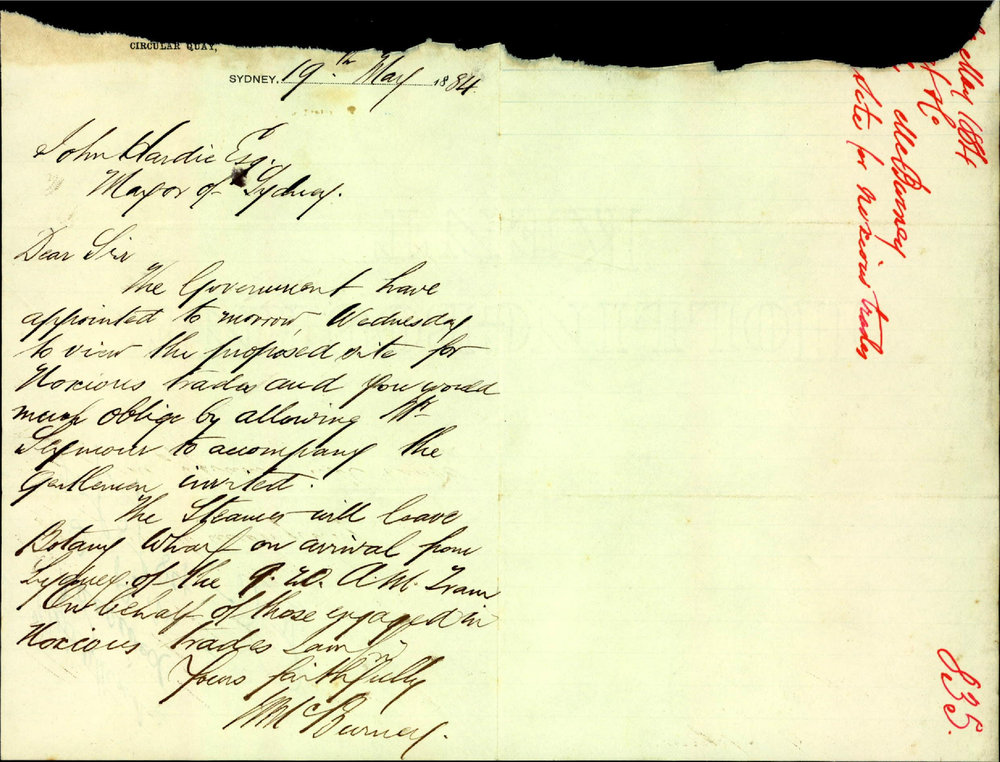 CIRCULAR QUAY,
SYDNEY, 19th May 1884.
John Hardie Esq.
Mayor of Sydney.
Dear Sir
The Government have
appointed to morrow, Wednesday
to view the proposed site for
Noxious trades and you would
much oblige by allowing Mr
Seymour to accompany the
gentlemen invited.
The Steamer will leave
Botany Wharf on arrival from
Sydney of the A.M. Tram
On behalf of those engaged in
Noxious trades I am
Yours faithfully
McBurney.
May 1884
McBurney
site for noxious trades
835.